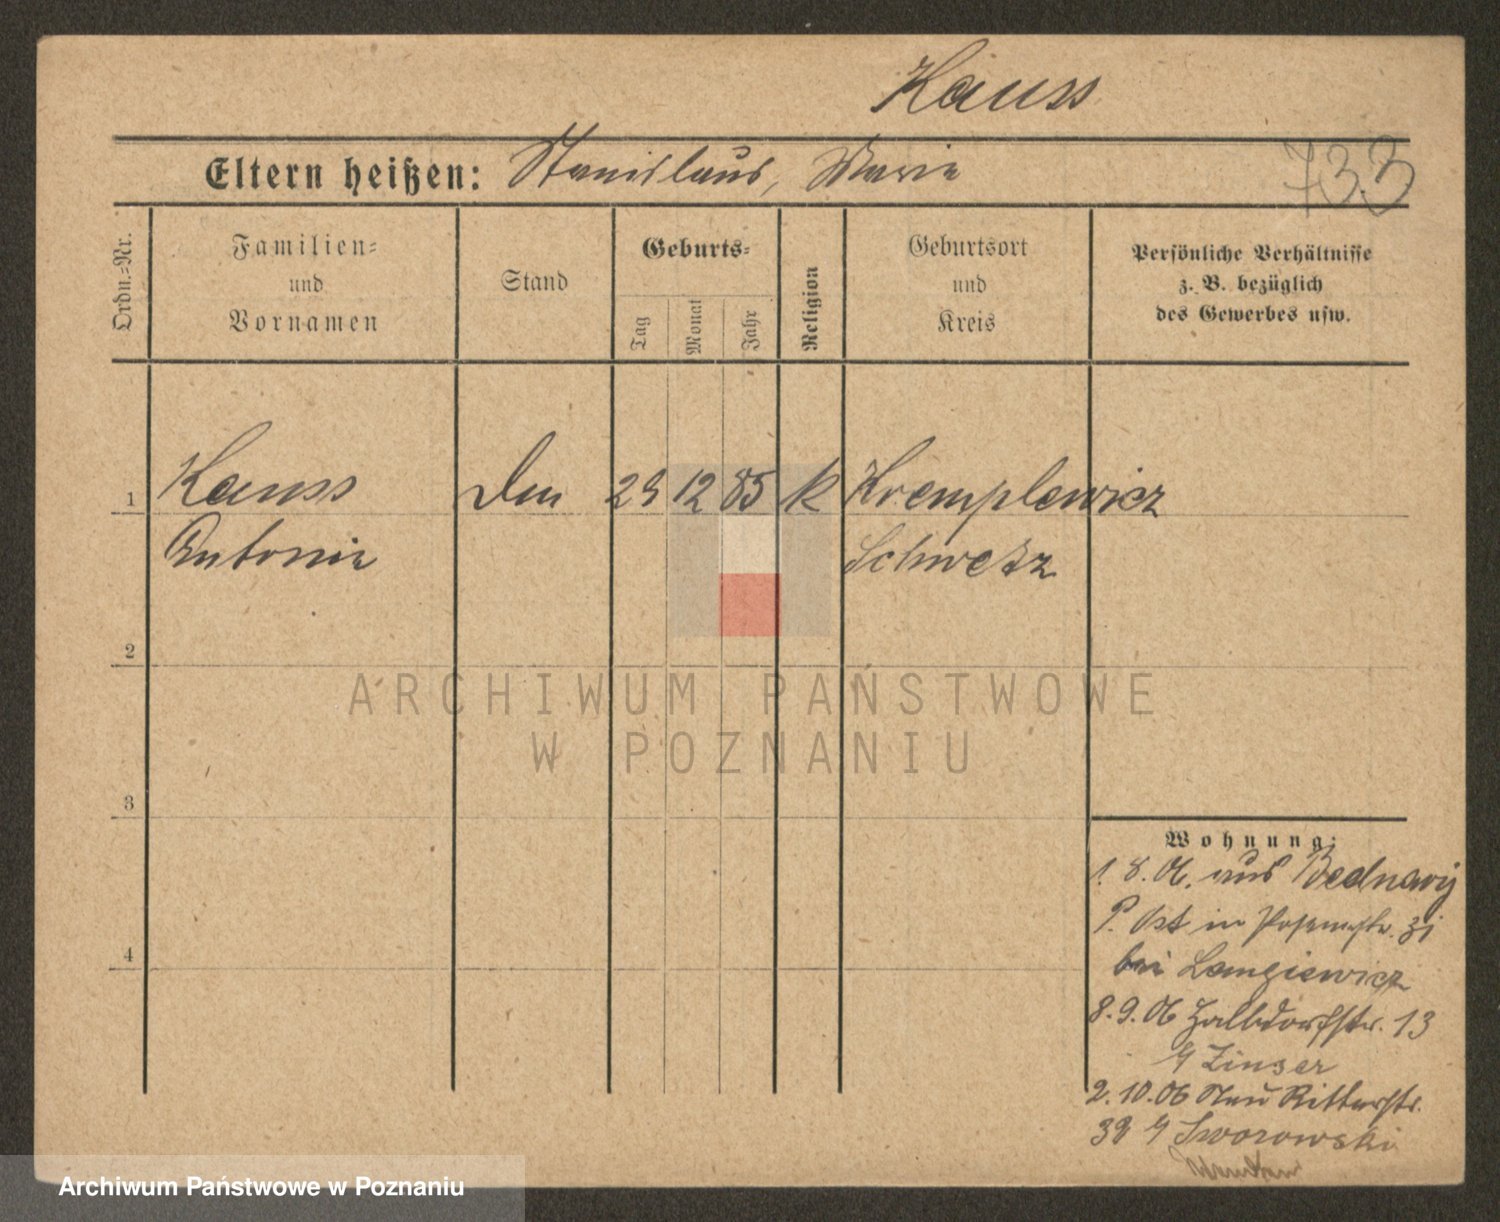 Kauss
Eltern heißen: Stanislaus, Marie
733
Ordn.=Nr.
Familien=
und
Vornamen
Stand
Geburts=
Tag
Monat
Jahr
Religion
Geburtsort
und
Kreis
Persönliche Verhältnisse
z. B. bezüglich
des Gewerbes usw.
1 Kauss 29 12 85 k Kremplewicz
Antonie Schwetz
2
ARCHIWUM PAŃSTWOWE
W POZNANIU
3
Wohnung:
1. 8. 06. aus Bednary
P. Ost in Posenerstr. 31
4
bei Langiewicz
8. 9. 06 Halbdorfstr. 13
Zinser
2. 10. 06 Neu Ritterstr.
38 Sworowski
Archiwum Państwowe w Poznaniu